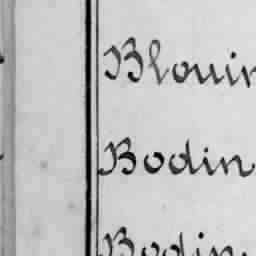 Blouin
Bodin
Bodin